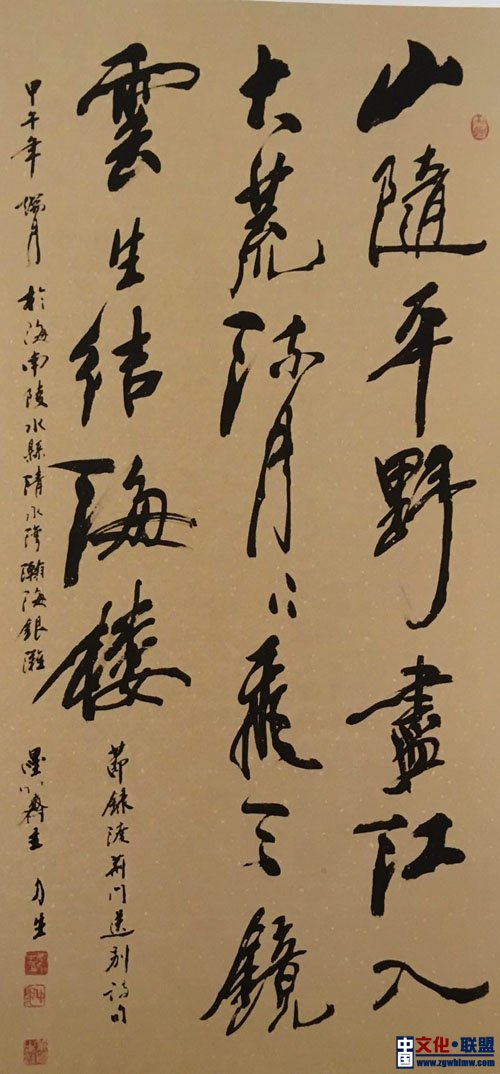 山隨平野盡江入
大荒流月下飛天鏡
雲生結海樓
節錄渡荊門送別詩句
甲午年臘月於海南陵水縣清水灣瀚海銀灘
齋主
中国文化·联盟
www.zgwhlmw.com